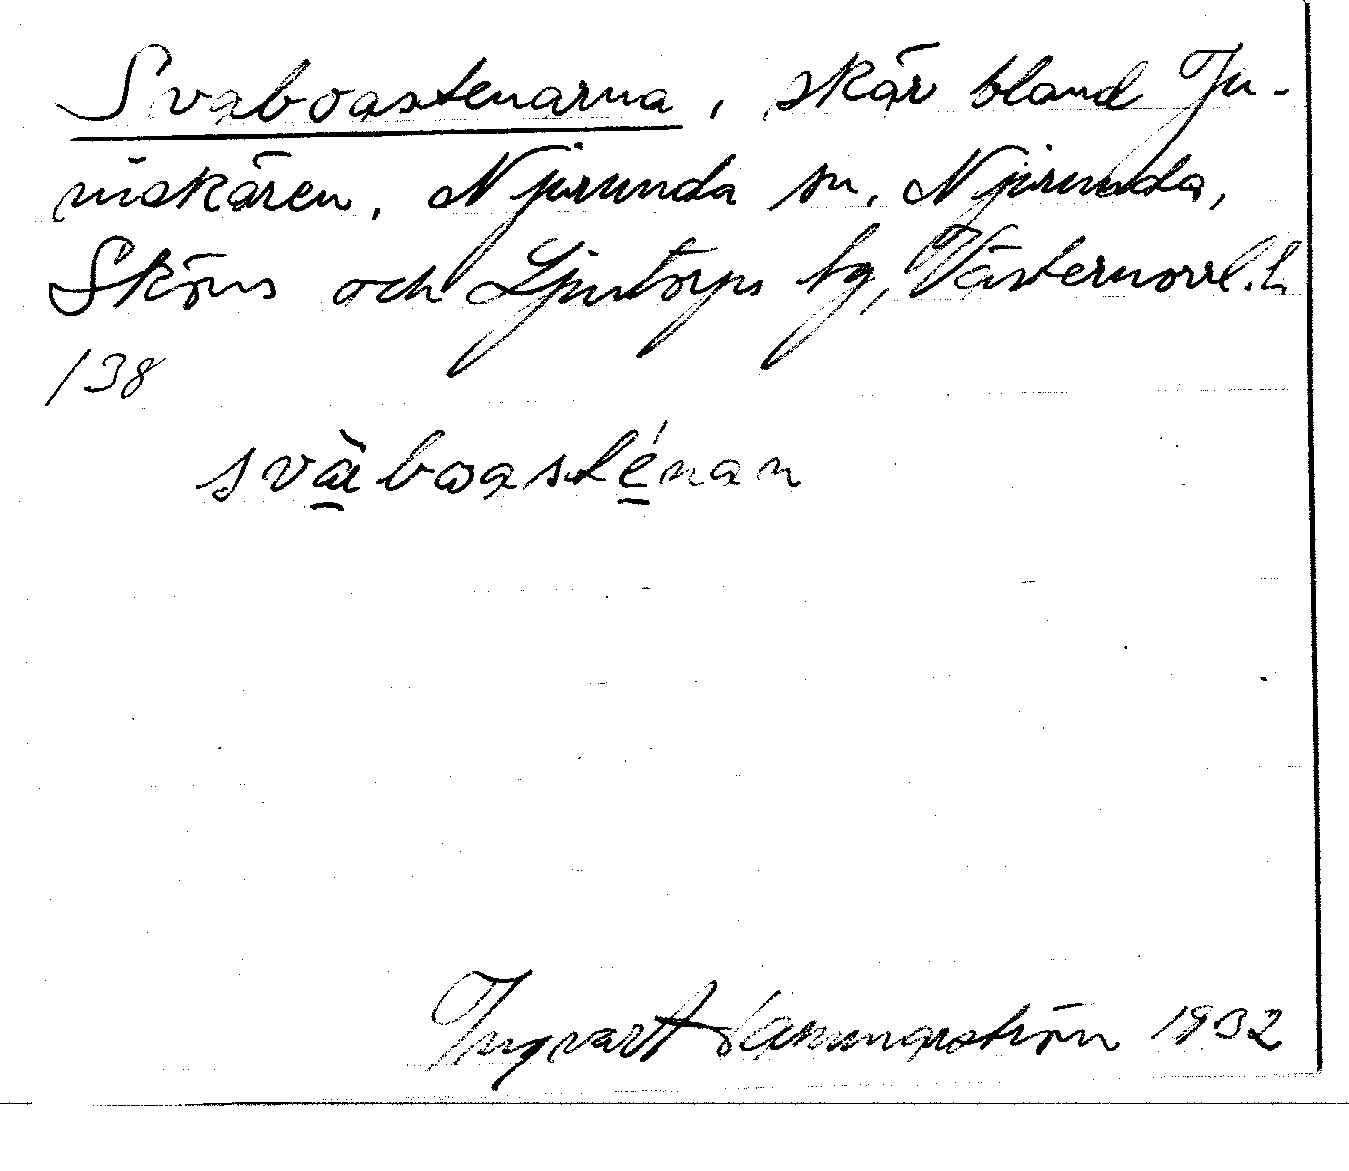 Svaboastenarna, skär bland Ju-
niskären, Njurunda sn, Njurunda,
Sköns och Ljustorps tg, Västernorrl. L
138
svàboasténan
Ingvart 1932